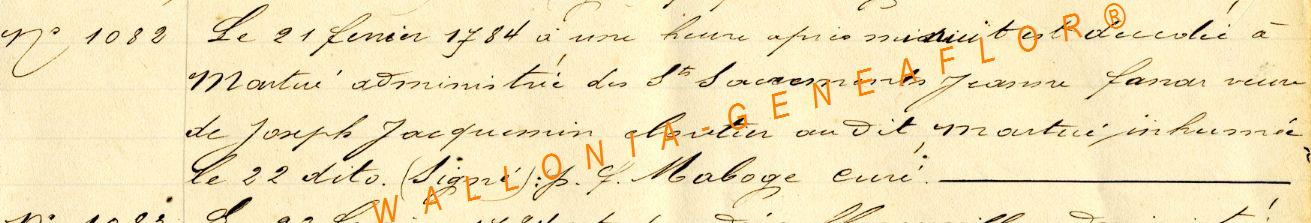 N° 1082 Le 21 fevrier 1784 à une heure après minuit est décédée à
Martué administrée des Sts Sacrements Jeanne fanar veuve
de Joseph Jacquemin au dit Martué inhumée
le 22 dito. (Signé): p. f. Maboge curé.
WALLONIA-GENEAFLOR®
N° 1083 Le 22 1784